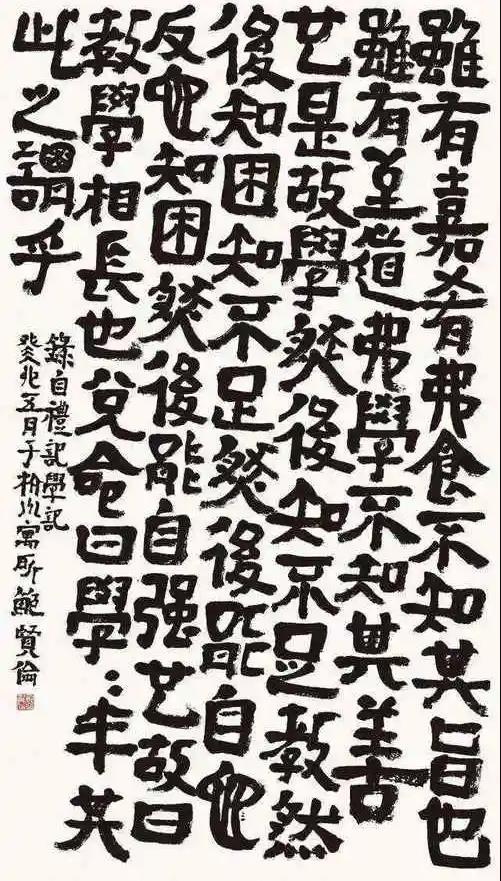 雖有嘉肴弗食不知其旨也
雖有至道弗學不知其善
也是故學然後知不足教然
後知困知不足然後能自
反也知困然後能自强也故曰
教學相長也兌命曰學:半其
此之謂乎
錄自禮記學記
癸卯五月于柏山寓所鮑賢倫